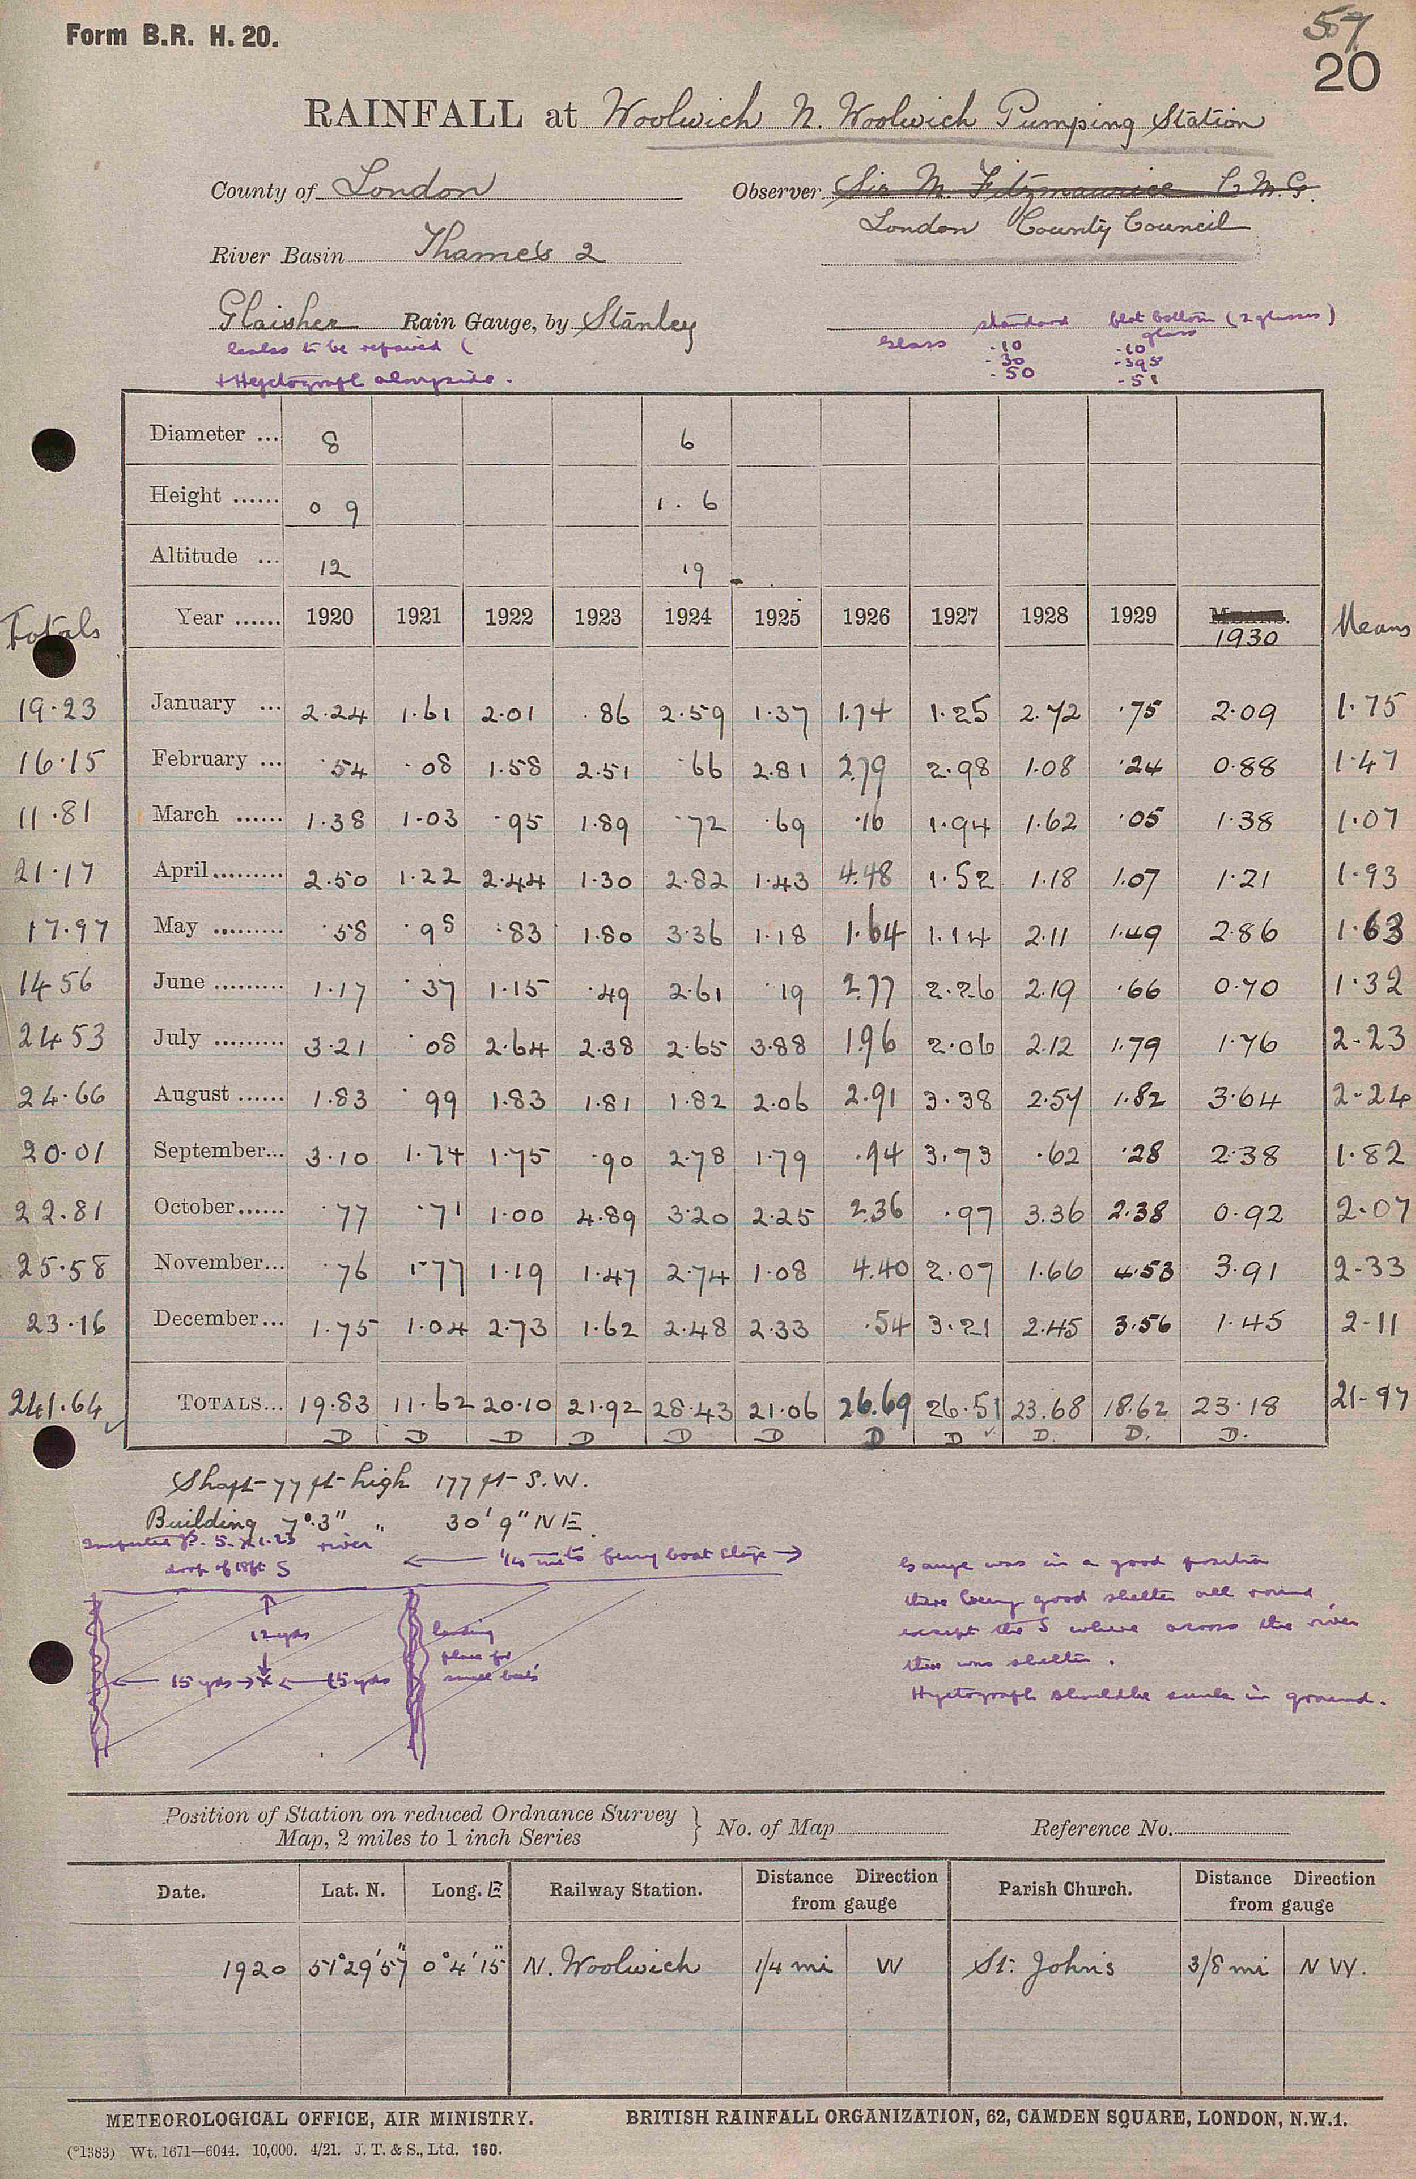 Form B.R. H. 20.
57
20
RAINFALL at Woolwich N. Woolwich Pumping Station
County of London Observer Sir M. Fitzmaurice C.M.G.
London County Council
River Basin Thames 2
Glaisher Rain Gauge, by Stanley
standard flat bottom (2 glasses)
glass
leaks to be repaired (
Glass .10 .10
.30 .395
.50 .51
+ Hyetograph alongside.
Diameter ... 8 6
Height ...... 0 9 1. 6
Altitude ... 12 19
Totals Year ...... 1920 1921 1922 1923 1924 1925 1926 1927 1928 1929 MEANS. 1930 Means
19.23 January ... 2.24 1.61 2.01 .86 2.59 1.37 1.74 1.25 2.72 .75 2.09 1.75
16.15 February ... .54 .08 1.58 2.51 .66 2.81 2.79 2.98 1.08 .24 0.88 1.47
11.81 March ...... 1.38 1.03 .95 1.89 .72 .69 .16 1.94 1.62 .05 1.38 1.07
21.17 April......... 2.50 1.22 2.44 1.30 2.82 1.43 4.48 1.52 1.18 1.07 1.21 1.93
17.97 May ......... .58 .98 .83 1.80 3.36 1.18 1.64 1.14 2.11 1.49 2.86 1.63
14.56 June ......... 1.17 .37 1.15 .49 2.61 .19 2.77 2.26 2.19 .66 0.70 1.32
24.53 July ......... 3.21 .08 2.64 2.38 2.65 3.88 1.96 2.06 2.12 1.79 1.76 2.23
24.66 August ...... 1.83 .99 1.83 1.81 1.82 2.06 2.91 3.38 2.57 1.82 3.64 2.24
20.01 September... 3.10 1.74 1.75 .90 2.78 1.79 .94 3.73 .62 .28 2.38 1.82
22.81 October...... .77 .71 1.00 4.89 3.20 2.25 2.36 .97 3.36 2.38 0.92 2.07
25.58 November... .76 1.77 1.19 1.47 2.74 1.08 4.40 2.07 1.66 4.53 3.91 2.33
23.16 December... 1.75 1.04 2.73 1.62 2.48 2.33 .54 3.21 2.45 3.56 1.45 2.11
241.64 TOTALS... 19.83 11.62 20.10 21.92 28.43 21.06 26.69 26.51 23.68 18.62 23.18 21.97
D D D D D D D D D. D. D.
Shaft 77 ft high 177 ft S.W.
Building 7°.3" " 30' 9" NE.
Inspected 23 river
drop of 18ft S
1/4 mile ferry boat stage
12 yds
15 yds 15 yds
landing
place for
small boats
Gauge was in a good position
there being good shelter all round
except the S where across the river
there was shelter.
Hyetograph should be sunk in ground.
Position of Station on reduced Ordnance Survey
Map, 2 miles to 1 inch Series } No. of Map Reference No.
Date. Lat. N. Long. E Railway Station. Distance Direction from gauge Parish Church. Distance Direction from gauge
1920 51°29'57" 0°4'15" N. Woolwich 1/4 mi W St. Johns 3/8 mi N W.
METEOROLOGICAL OFFICE, AIR MINISTRY. BRITISH RAINFALL ORGANIZATION, 62, CAMDEN SQUARE, LONDON, N.W.1.
(*1383) Wt. 1671—6044. 10,000. 4/21. J. T. & S., Ltd. 160.